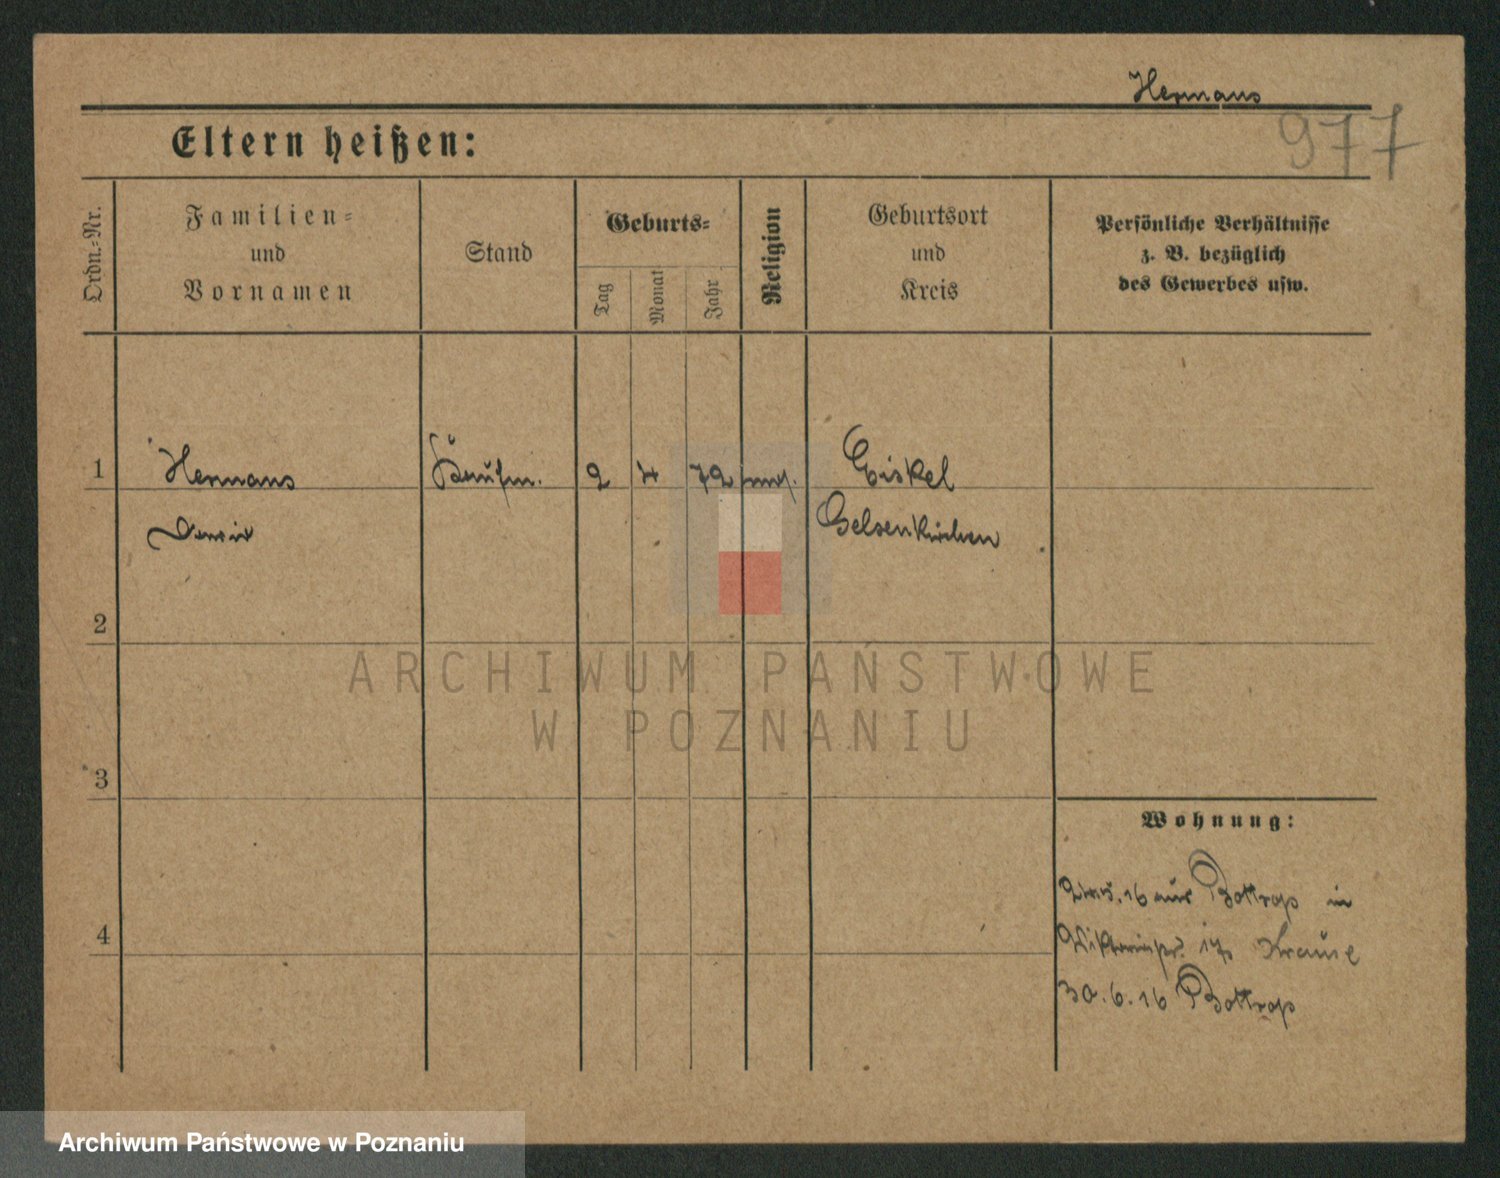 Hermans
977
Eltern heißen:
Ordn.-Nr.
Familien-
und
Vornamen
Stand
Geburts-
Tag
Monat
Jahr
Religion
Geburtsort
und
Kreis
Persönliche Verhältnisse
z. B. bezüglich
des Gewerbes usw.
1
Hermans
Kaufm.
2
4
72
Eiskel
Gelsenkirchen
2
ARCHIWUM PAŃSTWOWE
W POZNANIU
3
Wohnung:
16 aus Bottrop in
4
17 Krause
30.6.16 Bottrop
Archiwum Państwowe w Poznaniu